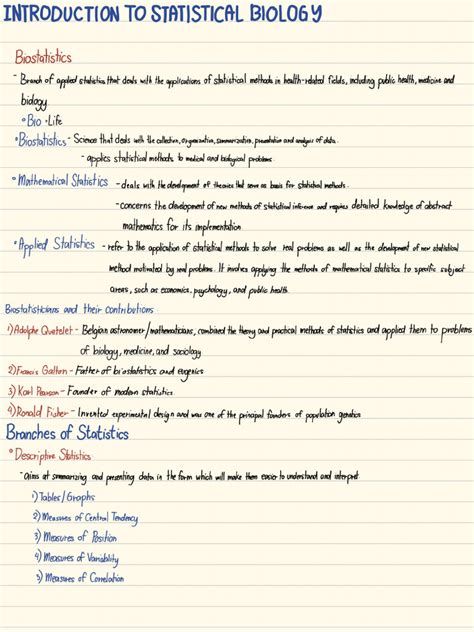 INTRODUCTION TO STATISTICAL BIOLOGY
Biostatistics
- Branch of applied statistics that deals with the applications of statistical methods in health-related fields, including public health, medicine and
biology
° Bio - Life
° Biostatistics - Science that deals with the collection, organization, summarization, presentation and analysis of data.
- applies statistical methods to medical and biological problems.
° Mathematical Statistics - deals with the development of theories that serve as basis for statistical methods.
- concerns the development of new methods of statistical inference and requires detailed knowledge of abstract
mathematics for its implementation
° Applied Statistics - refer to the application of statistical methods to solve real problems as well as the development of new statistical
method motivated by real problems. It involves applying the methods of mathematical statistics to specific subject
areas, such as economics, psychology, and public health.
Biostatisticians and their contributions:
1) Adolphe Quetelet - Belgian astronomer/mathematicians, combined the theory and practical methods of statistics and applied them to problems
of biology, medicine, and sociology
2) Francis Galton - Father of biostatistics and eugenics
3) Karl Pearson - Founder of modern statistics.
4) Ronald Fisher - Invented experimental design and was one of the principal founders of population genetics
Branches of Statistics
° Descriptive Statistics
- aims at summarizing and presenting data in the form which will make them easier to understand and interpret
1) Tables/Graphs
2) Measures of Central Tendency
3) Measures of Position
4) Measures of Variability
5) Measures of Correlation